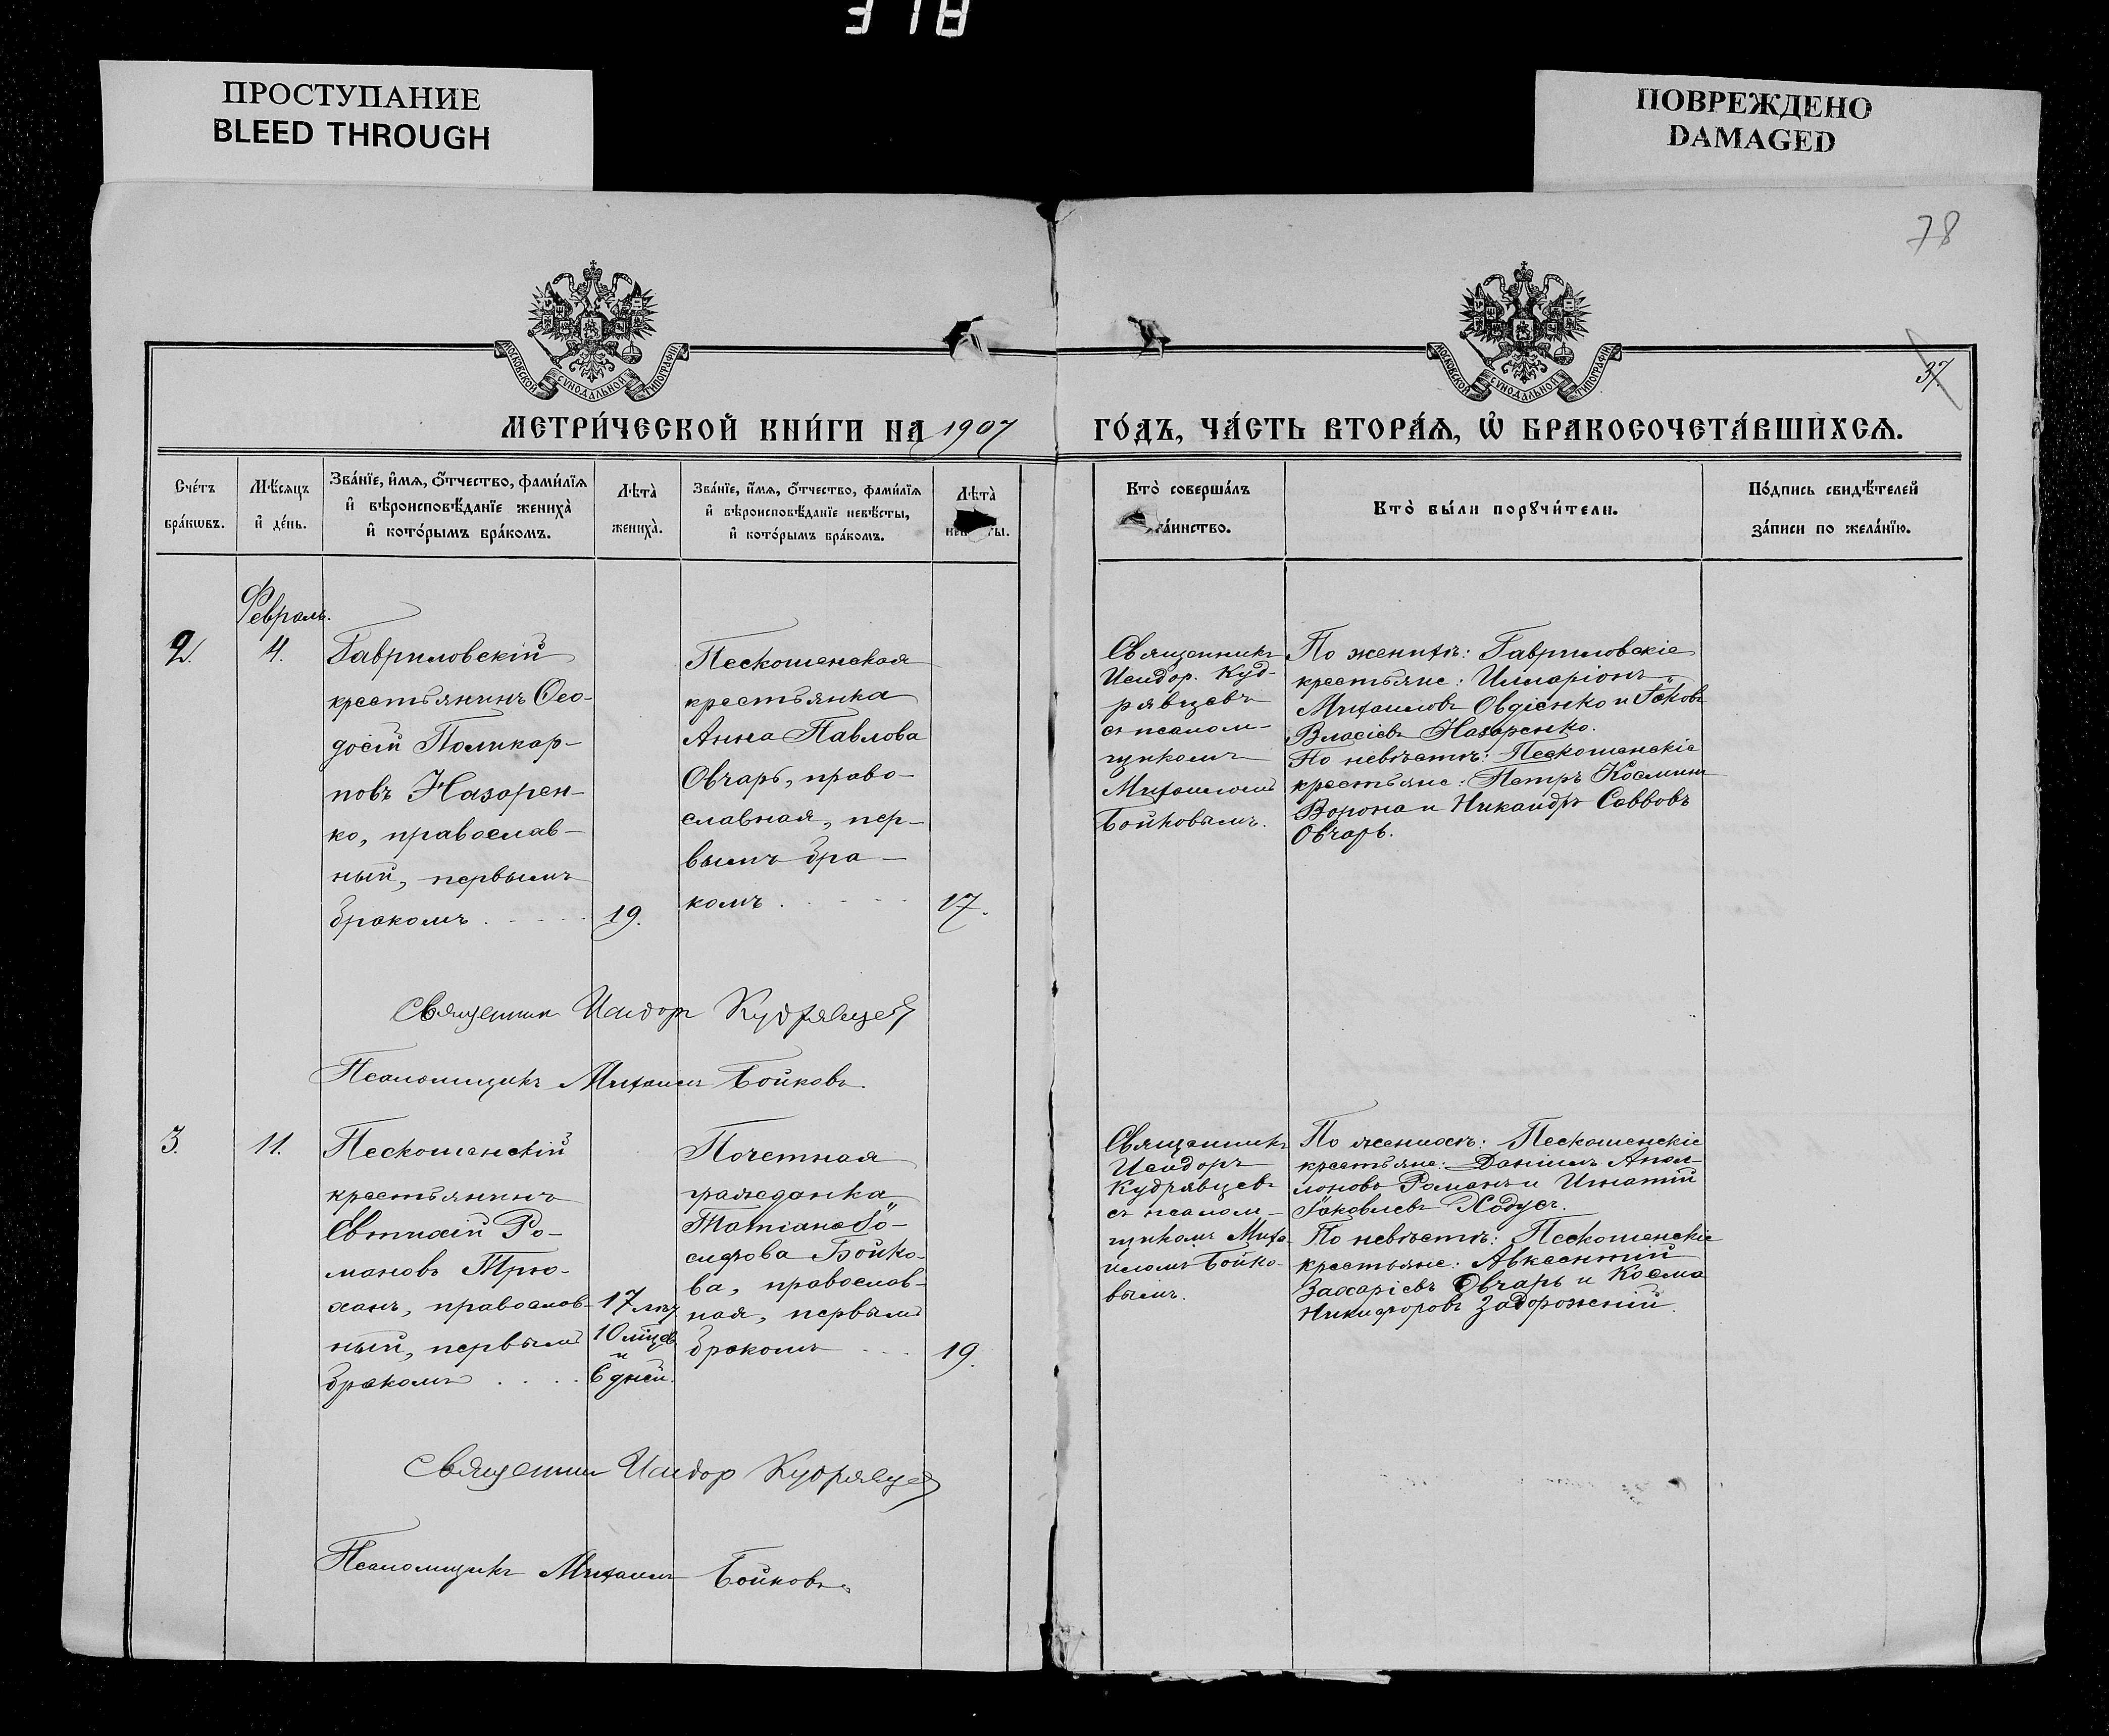 318
ПРОСТУПАНИЕ
BLEED THROUGH
ПОВРЕЖДЕНО
DAMAGED
78
37
МОСКОВСКОЙ СѴНОДАЛЬНОЙ ТИПОГРАФІИ
МОСКОВСКОЙ СѴНОДАЛЬНОЙ ТИПОГРАФІИ
МЕТРИ́ЧЕСКОЙ КНИ́ГИ НА 1907 ГО́ДЪ, ЧА́СТЬ ВТОРА́Ѧ, Ѽ БРАКОСОЧЕТА́ВШИХСѦ.
Сче́тъ
бра́кѡвъ.
Мѣ́сѧцъ
и҆ де́нь.
Зва́нїе, и҆́мѧ, ѻ҆́тчество, фамѝлїѧ
и҆ вѣроисповѣ́данїе жениха̀
и҆ кото́рымъ бра́комъ.
Лѣта̀
жениха̀.
Зва́нїе, и҆́мѧ, ѻ҆́тчество, фамѝлїѧ
и҆ вѣроисповѣ́данїе невѣ́сты,
и҆ кото́рымъ бра́комъ.
Лѣта̀
нев ты.
Кто̀ соверша́лъ
та́инство.
Кто̀ бы́ли порꙋчи́тели.
По́дпись свидѣ́телей
за́писи по жела́нїю.
Февраль.
2.
4.
Гавриловскій
крестьянинъ Ѳео-
досій Поликар-
повъ Назарен-
ко, православ-
ный, первымъ
бракомъ . . . . .
19.
Пескошенская
крестьянка
Анна Павлова
Овчарь, право-
славная, пер-
вымъ бра-
комъ . . . . .
17.
Священникъ
Исидор. Куд-
рявцевъ
съ псалом-
щикомъ
Михаиломъ
Бойковымъ.
По женихѣ: Гавриловскіе
крестьяне: Илларіонъ
Михаиловъ Овдіенко и Іаковъ
Власіевъ Назаренко.
По невѣстѣ: Пескошенскіе
крестьяне: Петръ Косминъ
Ворона и Никандръ Саввовъ
Овчарь.
Священник Исидор Кудрявцев
Псаломщикъ Михаилъ Бойковъ.
3.
11.
Пескошенскій
крестьянинъ
Евтихій Ро-
мановъ Трю-
ханъ, православ-
ный, первымъ
бракомъ . . . .
17 лѣт
10 мцев
и
6 дней.
Почетная
гражданка
Татіана Іо-
сифова Бойко-
ва, православ-
ная, первымъ
бракомъ . . .
19.
Священникъ
Исидоръ
Кудрявцевъ
съ псалом-
щикомъ Миха-
иломъ Бойко-
вымъ.
По женихѣ: Пескошенскіе
крестьяне: Даніилъ Апол-
лоновъ Романъ и Игнатій
Іаковлевъ Ходусъ.
По невѣстѣ: Пескошенскіе
крестьяне: Авксентій
Захаріевъ Овчарь и Косма
Никифоровъ Задорожній.
Священник Исидор Кудрявцев
Псаломщикъ Михаилъ Бойковъ.